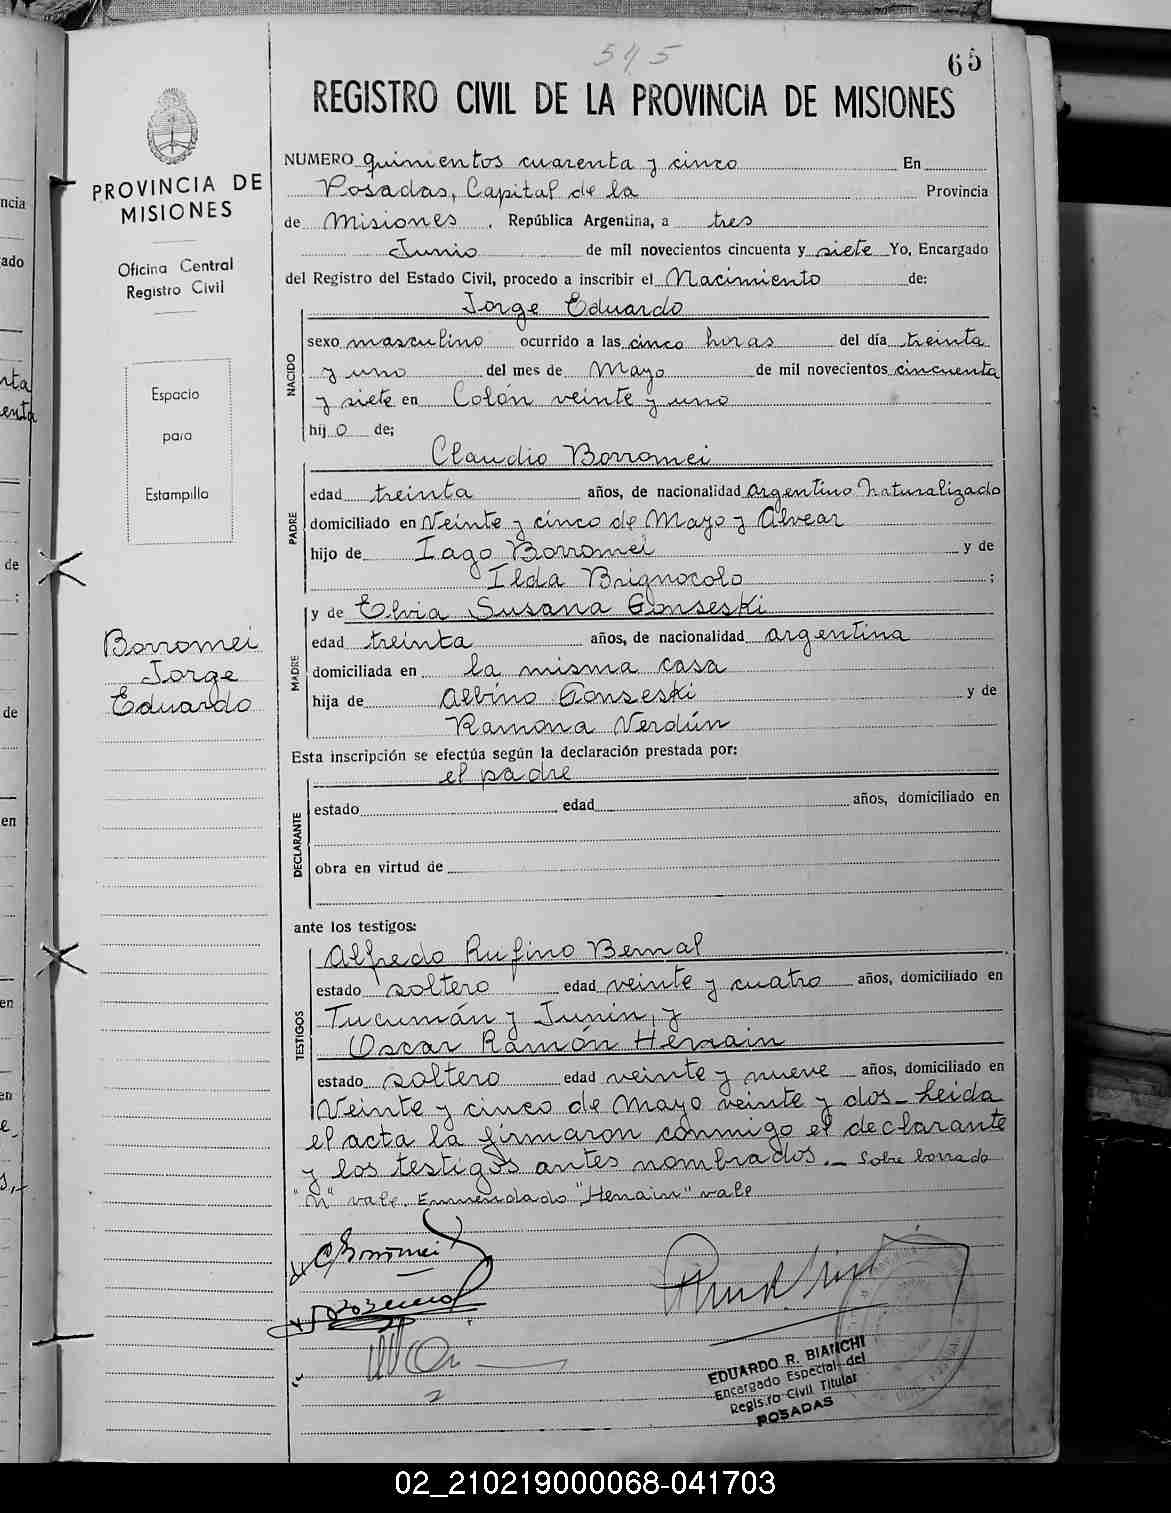 545
65
REGISTRO CIVIL DE LA PROVINCIA DE MISIONES
PROVINCIA DE
MISIONES
Oficina Central
Registro Civil
Espacio
para
Estampilla
Borromei
Jorge
Eduardo
NUMERO quinientos cuarenta y cinco En
Posadas, Capital de la Provincia
de Misiones, República Argentina, a tres
Junio de mil novecientos cincuenta y siete Yo, Encargado
del Registro del Estado Civil, procedo a inscribir el Nacimiento de:
Jorge Eduardo
NACIDO
sexo masculino ocurrido a las cinco horas del día treinta
y uno del mes de Mayo de mil novecientos cincuenta
y siete en Colón veinte y uno
hijo de;
Claudio Borromei
PADRE
edad treinta años, de nacionalidad argentino naturalizado
domiciliado en Veinte y cinco de Mayo y Alvear
hijo de Iago Borromei y de
Ilda Brignocolo ;
MADRE
y de Elvia Susana Gonseski
edad treinta años, de nacionalidad argentina
domiciliada en la misma casa
hija de Albino Gonseski y de
Ramona Verdún
Esta inscripción se efectúa según la declaración prestada por:
el padre
DECLARANTE
estado edad años, domiciliado en
obra en virtud de
ante los testigos:
TESTIGOS
Alfredo Rufino Bernal
estado soltero edad veinte y cuatro años, domiciliado en
Tucumán y Junin, y
Oscar Ramón Herrain
estado soltero edad veinte y nueve años, domiciliado en
Veinte y cinco de Mayo veinte y dos - Leida
el acta la firmaron conmigo el declarante
y los testigos antes nombrados. - Sobre borrado
"n" vale. Enmendado "Herrain" vale
C Borromei
EDUARDO R. BIANCHI
Encargado Especial del
Registro Civil Titular
POSADAS
02_210219000068-041703